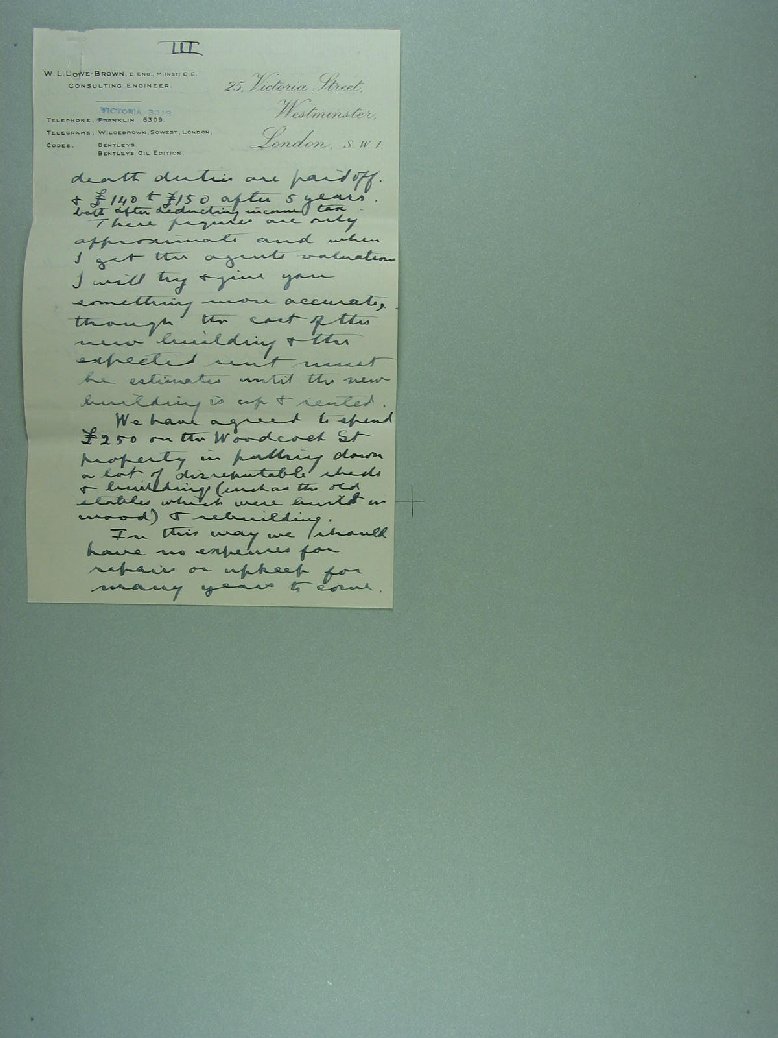 III
W. L. LOWE-BROWN, D. ENG., M. INST. C. E.
CONSULTING ENGINEER.
25, Victoria Street,
Westminster,
London, S.W.1
VICTORIA
TELEPHONE, FRANKLIN 6309.
TELEGRAMS, WILOEBROWN, SOWEST, LONDON.
CODES. BENTLEYS
BENTLEYS OIL EDITION
death duties are paid off.
& £140 to £150 after 5 years.
both after deducting income tax
These figures are only
approximate and when
I get the agents valuation
I will try & give you
something more accurate,
though the cost of the
new building & the
expected rent must
be estimates until the new
building is up & rented.
We have agreed to spend
£250 on the Woodcock St
property in pulling down
a lot of disreputable sheds
& buildings (such as the old
stables which were build in
wood) & rebuilding.
In this way we should
have no expenses for
repairs or upkeep for
many years to come.